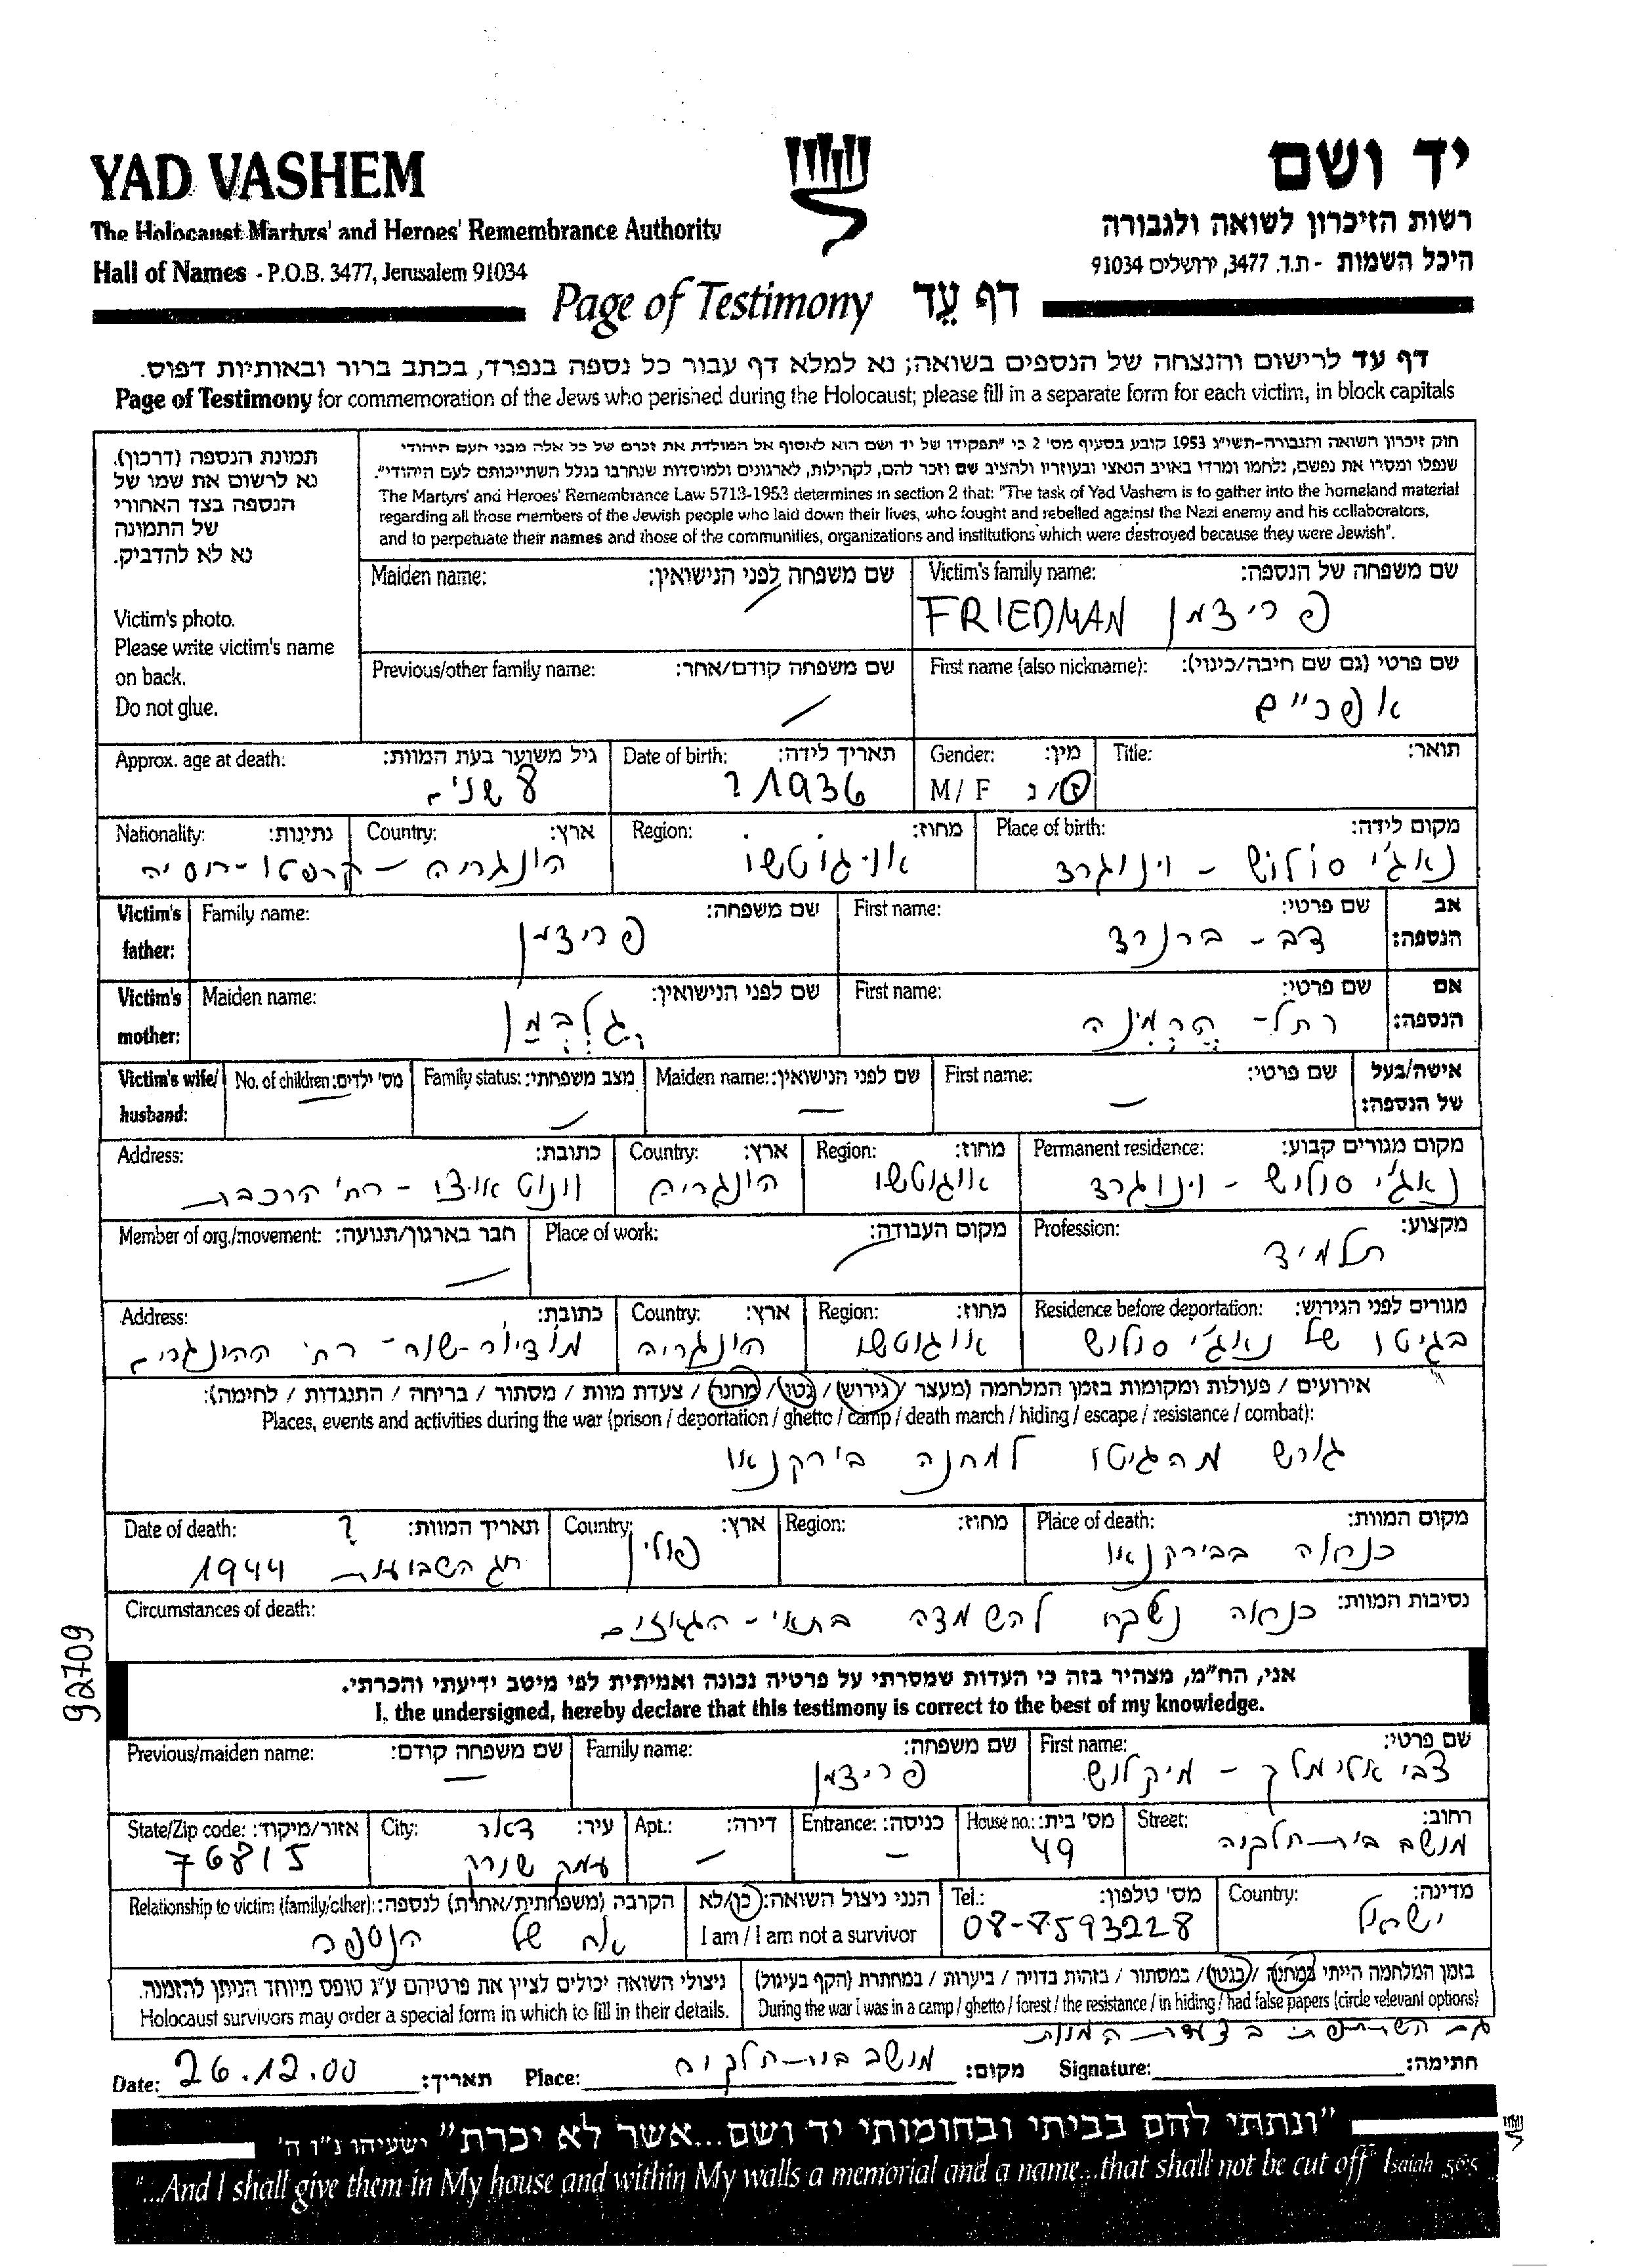 YAD VASHEM
יד ושם
The Holocaust Martyrs' and Heroes' Remembrance Authority
רשות הזיכרון לשואה ולגבורה
Hall of Names - P.O.B. 3477, Jerusalem 91034
היכל השמות - ת.ד. 3477, ירושלים 91034
Page of Testimony דף עֵד
דף עד לרישום והנצחה של הנספים בשואה; נא למלא דף עבור כל נספה בנפרד, בכתב ברור ובאותיות דפוס.
Page of Testimony for commemoration of the Jews who perished during the Holocaust; please fill in a separate form for each victim, in block capitals
תמונת הנספה (דרכון).
נא לרשום את שמו של
הנספה בצד האחורי
של התמונה
נא לא להדביק.
Victim's photo.
Please write victim's name
on back.
Do not glue.
חוק זיכרון השואה והגבורה-תשי"ג 1953 קובע בסעיף מס' 2 כי "תפקידו של יד ושם הוא לאסוף אל המולדת את זכרם של כל אלה מבני העם היהודי
שנפלו ומסרו את נפשם, נלחמו ומרדו באויב הנאצי ובעוזריו ולהציב שם וזכר להם, לקהילות, לארגונים ולמוסדות שנחרבו בגלל השתייכותם לעם היהודי".
The Martyrs' and Heroes' Remembrance Law 5713-1953 determines in section 2 that: "The task of Yad Vashem is to gather into the homeland material
regarding all those members of the Jewish people who laid down their lives, who fought and rebelled against the Nazi enemy and his collaborators,
and to perpetuate their names and those of the communities, organizations and institutions which were destroyed because they were Jewish".
Victim's family name: שם משפחה של הנספה:
FRIEDMAN פרידמן
Maiden name: שם משפחה לפני הנישואין:
First name (also nickname): שם פרטי (גם שם חיבה/כינוי):
אפרים
Previous/other family name: שם משפחה קודם/אחר:
Title: תואר:
Gender: מין:
M / F ז/נ
Date of birth: תאריך לידה:
1936 ?
Approx. age at death: גיל משוער בעת המוות:
8 שנים
Place of birth: מקום לידה:
נאג'י סולוש - וינוגרד
Region: מחוז:
אוגוטשו
Country: ארץ:
Nationality: נתינות:
הונגריה - קרפטו-רוסיה
Victim's father: אב הנספה:
First name: שם פרטי:
דב - ברנרד
Family name: שם משפחה:
פרידמן
Victim's mother: אם הנספה:
First name: שם פרטי:
רחל - הרמינה
Maiden name: שם לפני הנישואין:
גלבמן
Victim's wife/ husband: אישה/בעל של הנספה:
First name: שם פרטי:
Maiden name: שם לפני הנישואין:
Family status: מצב משפחתי:
No. of children: מס' ילדים:
Permanent residence: מקום מגורים קבוע:
נאג'י סולוש - וינוגרד
Region: מחוז:
אוגוטשו
Country: ארץ:
הונגריה
Address: כתובת:
רח' הרכבת
Profession: מקצוע:
תלמיד
Place of work: מקום העבודה:
Member of org./movement: חבר בארגון/תנועה:
Residence before deportation: מגורים לפני הגירוש:
בגיטו של נאג'י סולוש
Region: מחוז:
אוגוטשו
Country: ארץ:
הונגריה
Address: כתובת:
רח' ההונגרים
אירועים / פעולות ומקומות בזמן המלחמה (מעצר / גירוש / גטו / מחנה / צעדת מוות / מסתור / בריחה / התנגדות / לחימה):
Places, events and activities during the war (prison / deportation / ghetto / camp / death march / hiding / escape / resistance / combat):
גורש מהגיטו למחנה בירקנאו
Place of death: מקום המוות:
כנראה בבירקנאו
Region: מחוז:
Country: ארץ:
פולין
Date of death: תאריך המוות: ?
חג השבועות 1944
Circumstances of death: נסיבות המוות:
כנראה נשלח להשמדה בתאי-הגאזים
92709
אני, הח"מ, מצהיר בזה כי העדות שמסרתי על פרטיה נכונה ואמיתית לפי מיטב ידיעתי והכרתי.
I, the undersigned, hereby declare that this testimony is correct to the best of my knowledge.
First name: שם פרטי:
צבי אלימלך - מיקלוש
Family name: שם משפחה:
פרידמן
Previous/maiden name: שם משפחה קודם:
Street: רחוב:
מושב בית-חלקיה
House no.: מס' בית:
49
Entrance: כניסה:
Apt.: דירה:
City: עיר:
דואר
עמק שורק
State/Zip code: אזור/מיקוד:
76815
Country: מדינה:
ישראל
Tel.: מס' טלפון:
08-8593228
הנני ניצול השואה: כן/לא
I am / I am not a survivor
Relationship to victim (family/other): הקרבה (משפחתית/אחרת) לנספה:
אח של הנספה
בזמן המלחמה הייתי במחנה / בגטו / במסתור / בזהות בדויה / ביערות / במחתרת (הקף בעיגול)
During the war I was in a camp / ghetto / forest / the resistance / in hiding / had false papers (circle relevant options)
ניצולי השואה יכולים לציין את פרטיהם ע"ג טופס מיוחד הניתן להזמנה.
Holocaust survivors may order a special form in which to fill in their details.
גם השתתפתי בצעדת המוות
Date: 26.12.00 תאריך:
Place: מושב בית-חלקיה מקום:
Signature: חתימה:
"ונתתי להם בביתי ובחומותי יד ושם...אשר לא יכרת" ישעיהו נ"ו ה'
"...And I shall give them in My house and within My walls a memorial and a name...that shall not be cut off" Isaiah 56:5